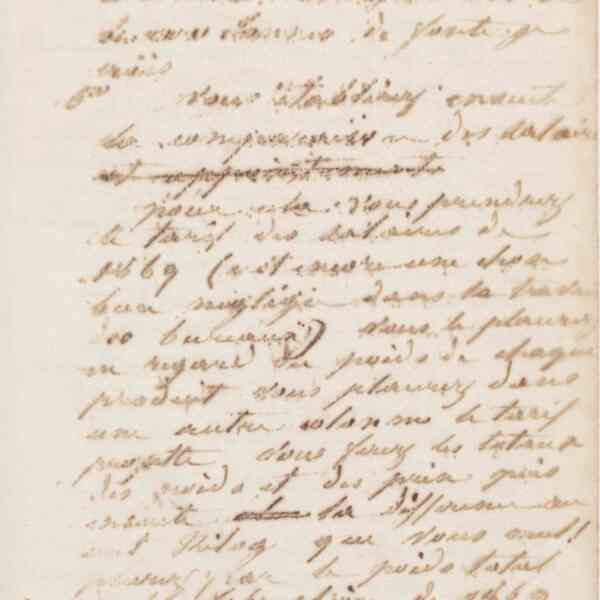 de fonte
6°
Vous établirez ensuite
la comparaison des salaires
et appointements
pour cela vous prendrez
le tarif des salaires de
1869 (c'est encore une chose
bien négligée dans le travail
des bureaux) Vous le placerez
en regard du poids de chaque
produit vous placerez dans
une autre colonne le tarif
Vous ferez les totaux
des poids et des prix puis
ensuite la différence au
cent Kilog que vous multi
par le poids total
de 1869